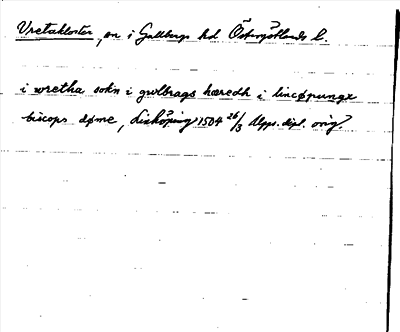 Vretakloster, sn i Gullbergs hd Östergötlands l.
i wretha sokn i gwlbrags hæredh i lincøpungx
biscops døme, Linköping 1504 26/3 Upps. dipl. orig.